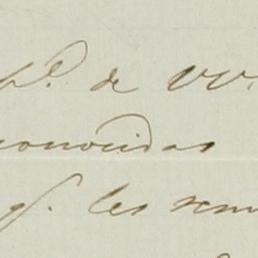 p.ᵈ de VV.
conocidas
q.ᵉ les rem